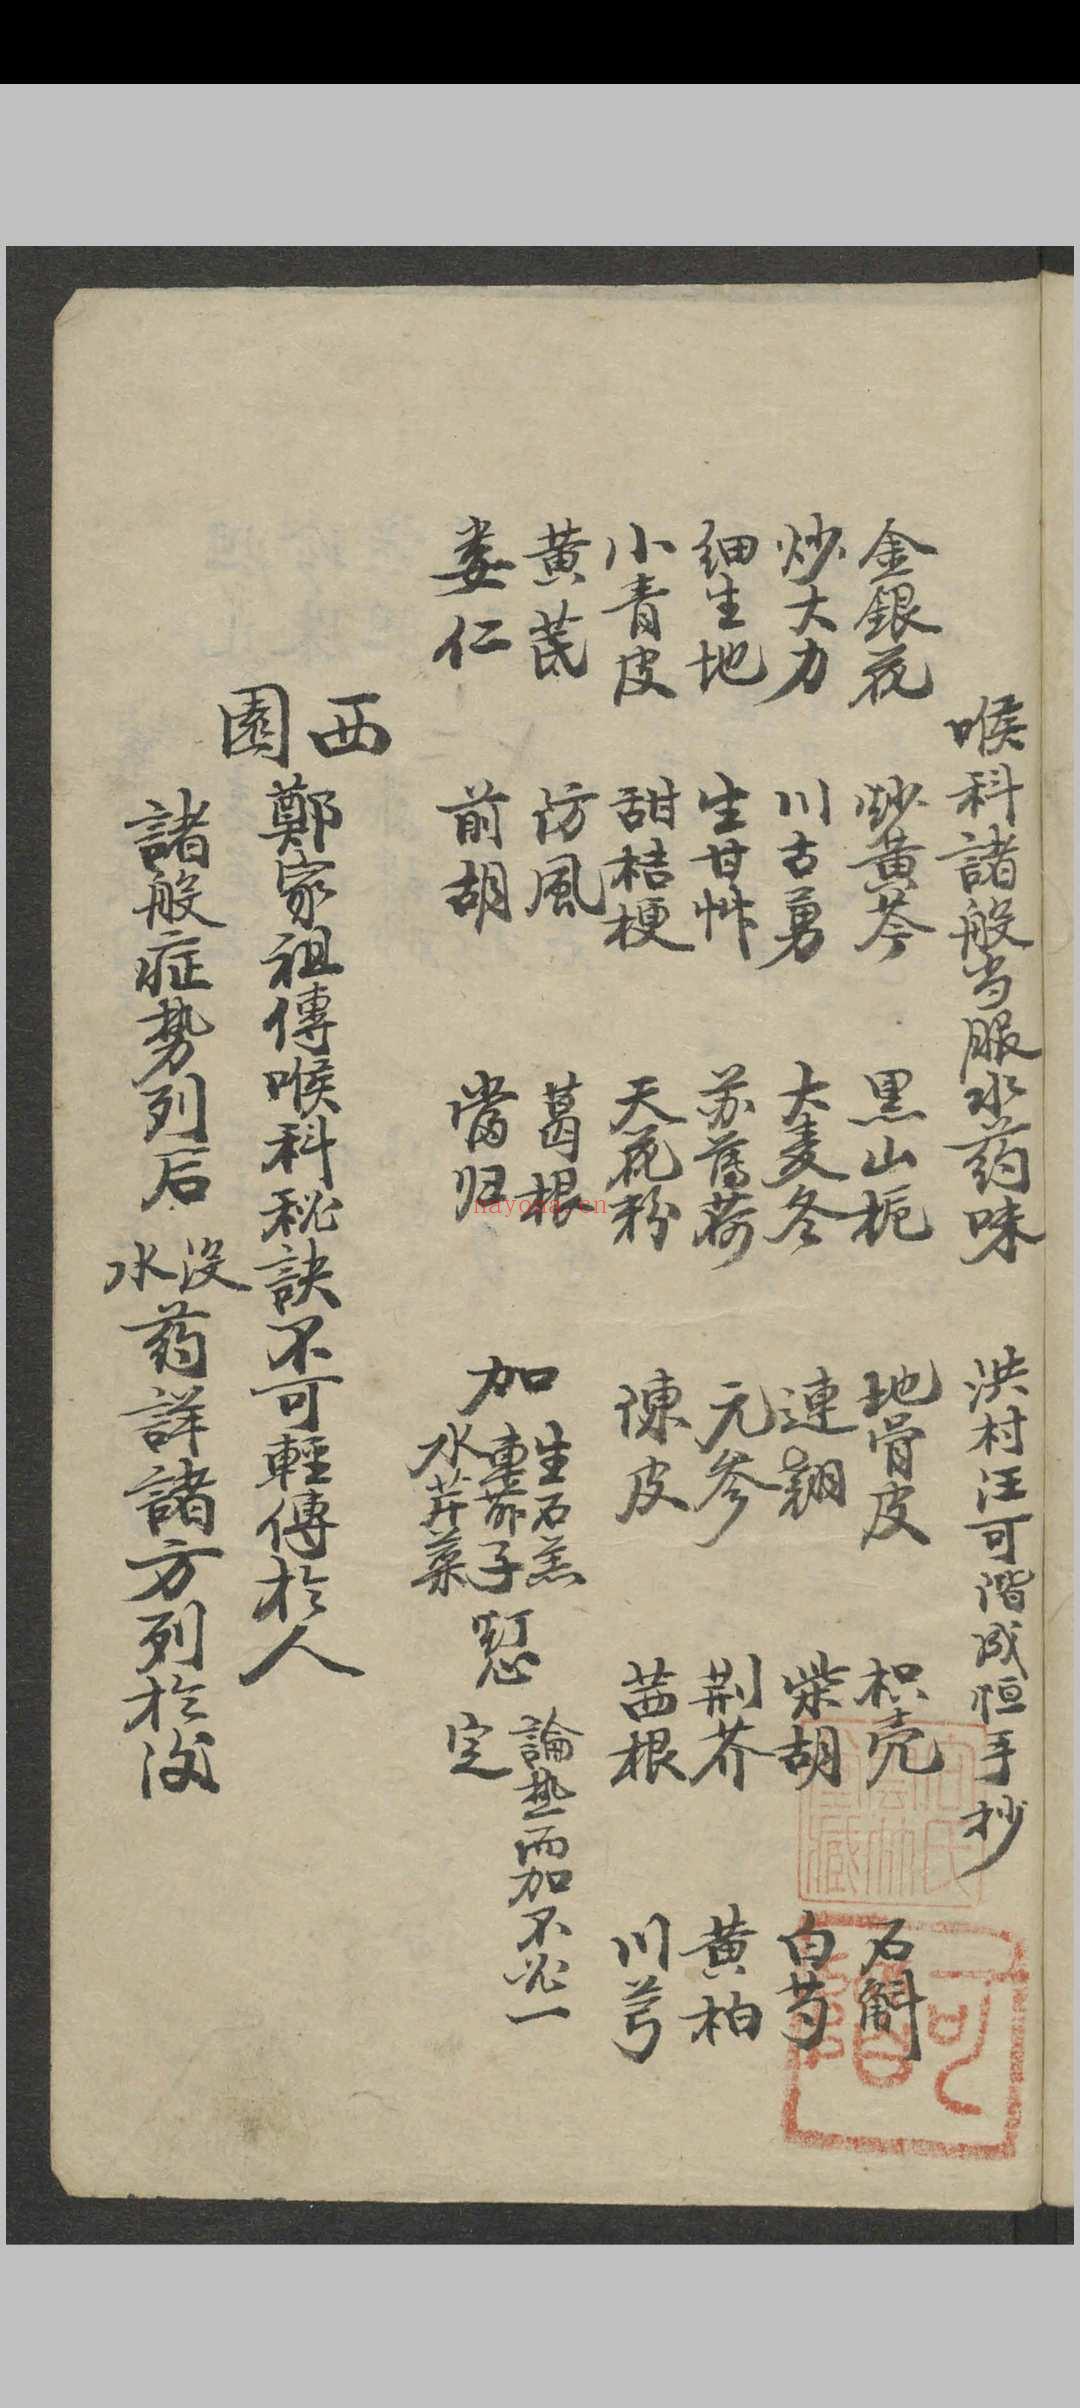 喉科諸般当服水药味 洪村汪可階成恒手抄
金銀花 炒黃芩 黑山栀 地骨皮 枳壳 石斛
炒大力 川古勇 大麦冬 連翘 柴胡 白芍
细生地 生甘艸 苏薄荷 元參 荆芥 黄柏
小青皮 甜桔梗 天花粉 陳皮 茜根 川芎
黄芪 防風 葛根
蒌仁 前胡 當归
加 生石羔 車前子 水芹菜
論热而加不必一定
西園
鄭家祖傳喉科秘訣不可輕傳於人
諸般症势列后 没水药詳諸方列於後
nayona.cn